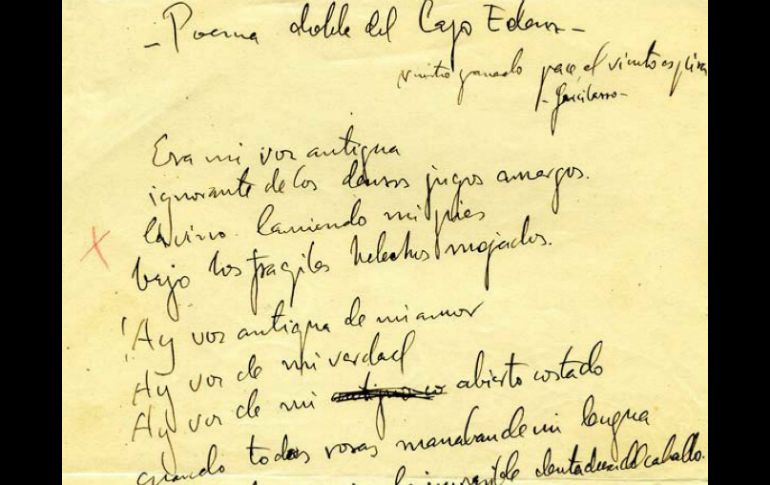 - Poema doble del Lago Edem -
nuestro ganado pace, el viento espira
- Garcilasso -
Era mi voz antigua
ignorante de los densos jugos amargos.
la vino lamiendo mis pies
bajo los fragiles helechos mojados.
¡Ay voz antigua de mi amor
Ay voz de mi verdad
Ay voz de mi abierto costado
quando todas rosas manaban de mi lengua
de dentadura del caballo.